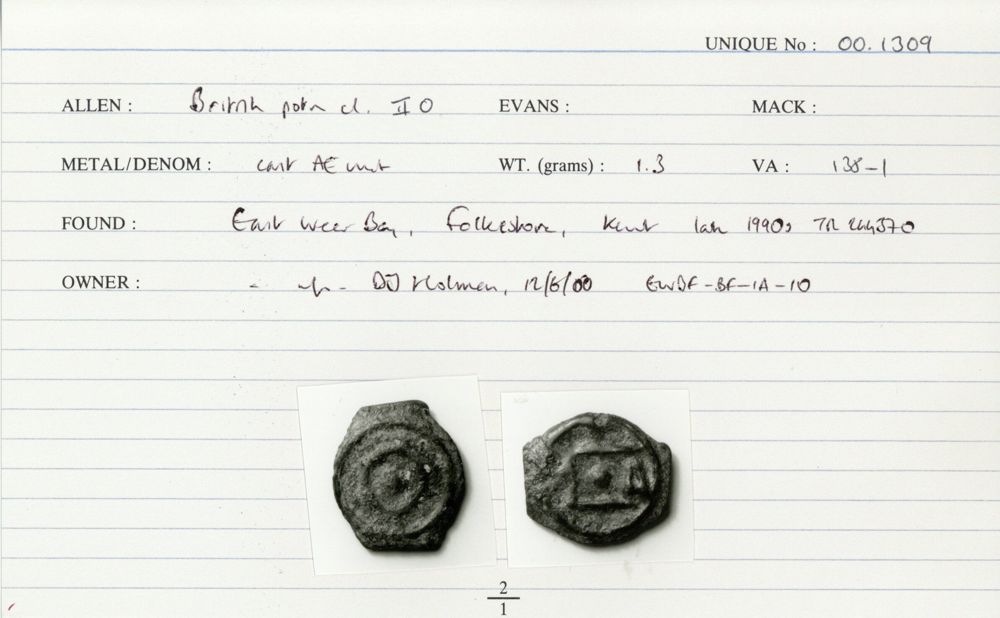 UNIQUE No : 00.1309
ALLEN : British potin cl. II O EVANS : MACK :
METAL/DENOM : cast AE unit WT. (grams) : 1.3 VA : 138-1
FOUND : East Wear Bay, Folkestone, Kent late 1990s TR 244370
OWNER : DJ Holman, 12/6/00 EWDF-BF-IA-10
2
1